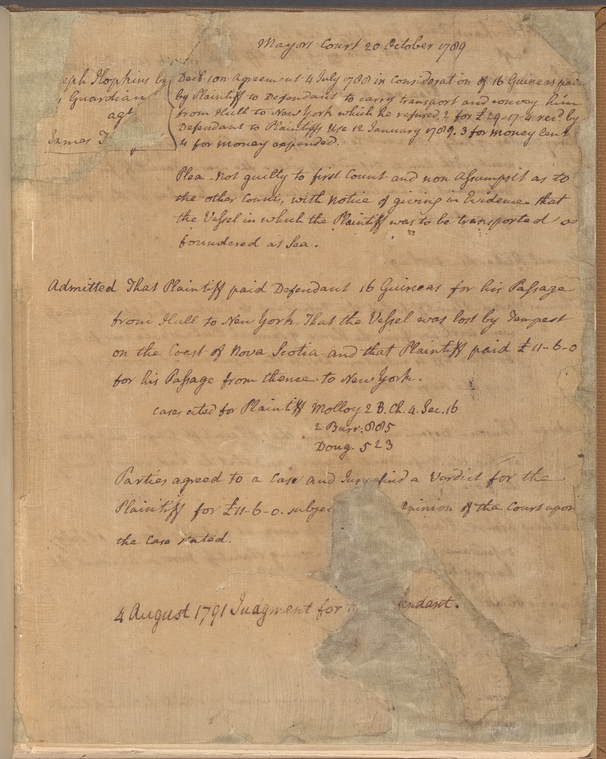 Mayors Court 20 October 1789
eph Hopkins by
Guardian
agt
James
Decl: on Agreement 4 July 1788 in consideration of 16 Guineas pai
by Plaintiff to Defendant to carry transport and convey him
from Hull to New York which he refused, 2 for £29-17-4 recd by
Defendant to Plaintiffs Use 12 January 1789. 3 for money lent
4 for money expended.
Plea - Not guilty to first Count and non Assumpsit as to
the other Counts, with notice of giving in Evidence that
the Vessel in which the Plaintiff was to be transported
foundered at Sea.
Admitted That Plaintiff paid Defendant 16 Guineas for his Passage
from Hull to New York. That the Vessel was lost by Tempest
on the Coast of Nova Scotia and that Plaintiff paid £11-6-0
for his Passage from thence to New York.
Cases cited for Plaintiff Molloy 2 B. Ch. 4. Sec. 16
2 Burr. 885
Doug. 523
Parties agreed to a Case and Jury find a Verdict for the
Plaintiff for £11-6-0. subjec pinion of the Court upon
the Case stated.
4 August 1791 Judgment for endant.